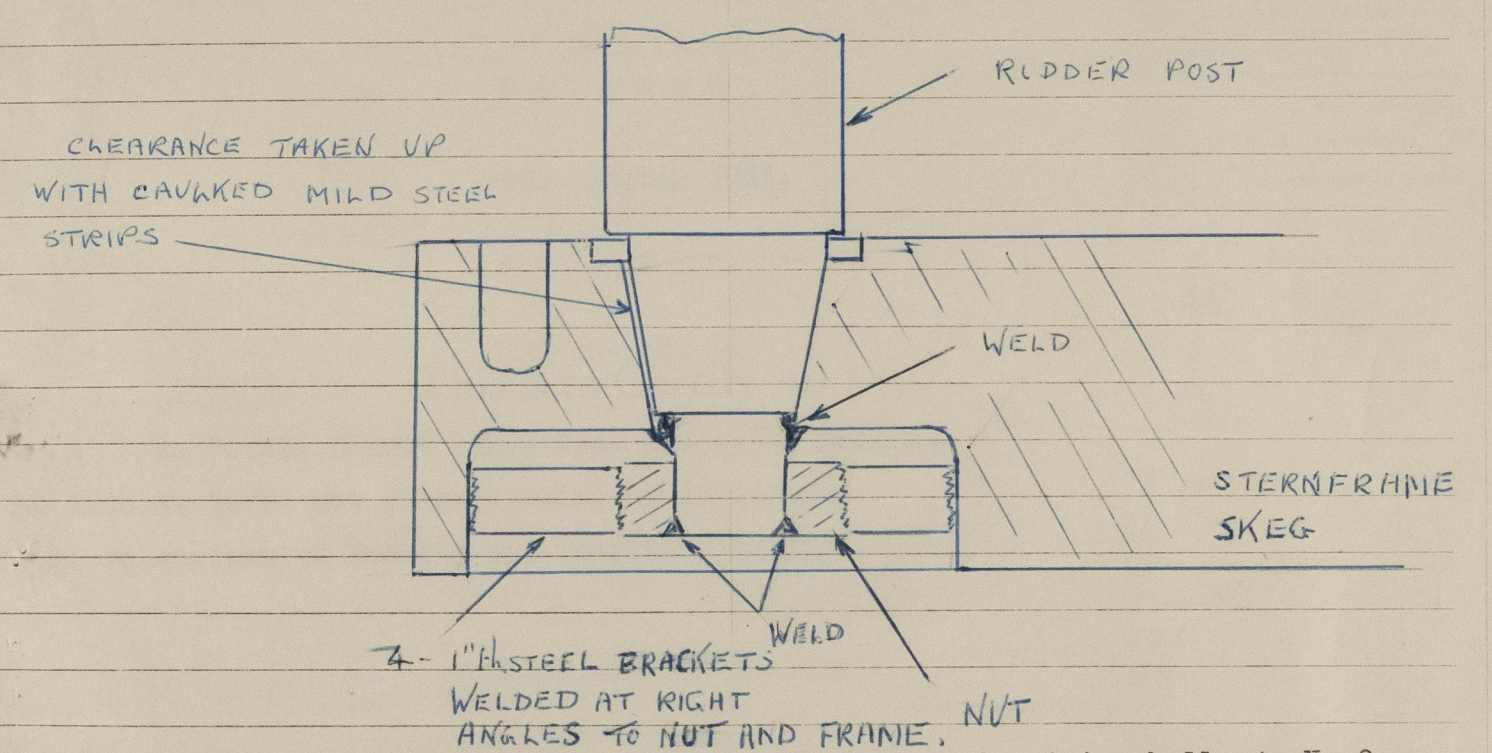 RUDDER POST
CLEARANCE TAKEN UP
WITH CAULKED MILD STEEL
STRIPS
WELD
STERNFRAME
SKEG
WELD
4- 1" STEEL BRACKETS
WELDED AT RIGHT
ANGLES TO NUT AND FRAME.
NUT